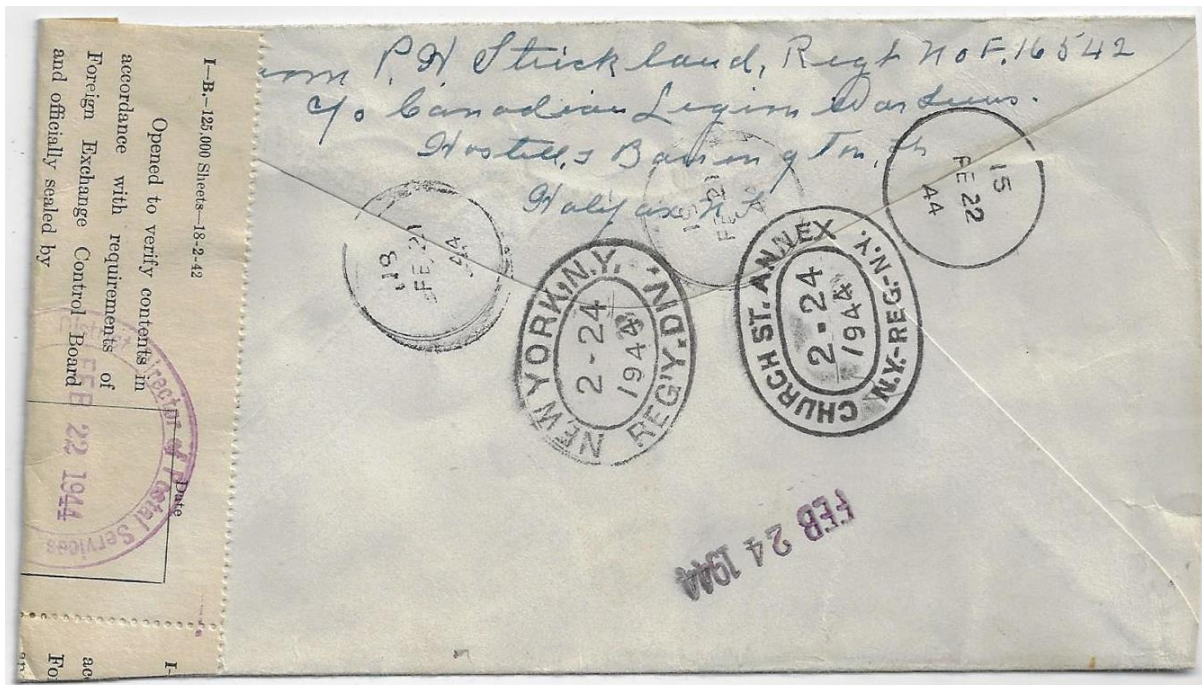 I—B.—125,000 Sheets—18-2-42
Opened to verify contents in
accordance with requirements of
Foreign Exchange Control Board
and officially sealed by
Date
District Director of Postal Services
FEB 22 1944
I—
ac
Fo
an
om P. H Strickland, Regt No F. 16542
c/o Canadian Legion War
Hostell,s Barrington, St
Halifax N.S
18
FE 21
44
FE 21
15
FE 22
44
NEW YORK, N.Y. REG'Y. DN.
2-24
1944
CHURCH ST. ANNEX N.Y.-REG.-N.Y.
2-24
1944
FEB 24 1944